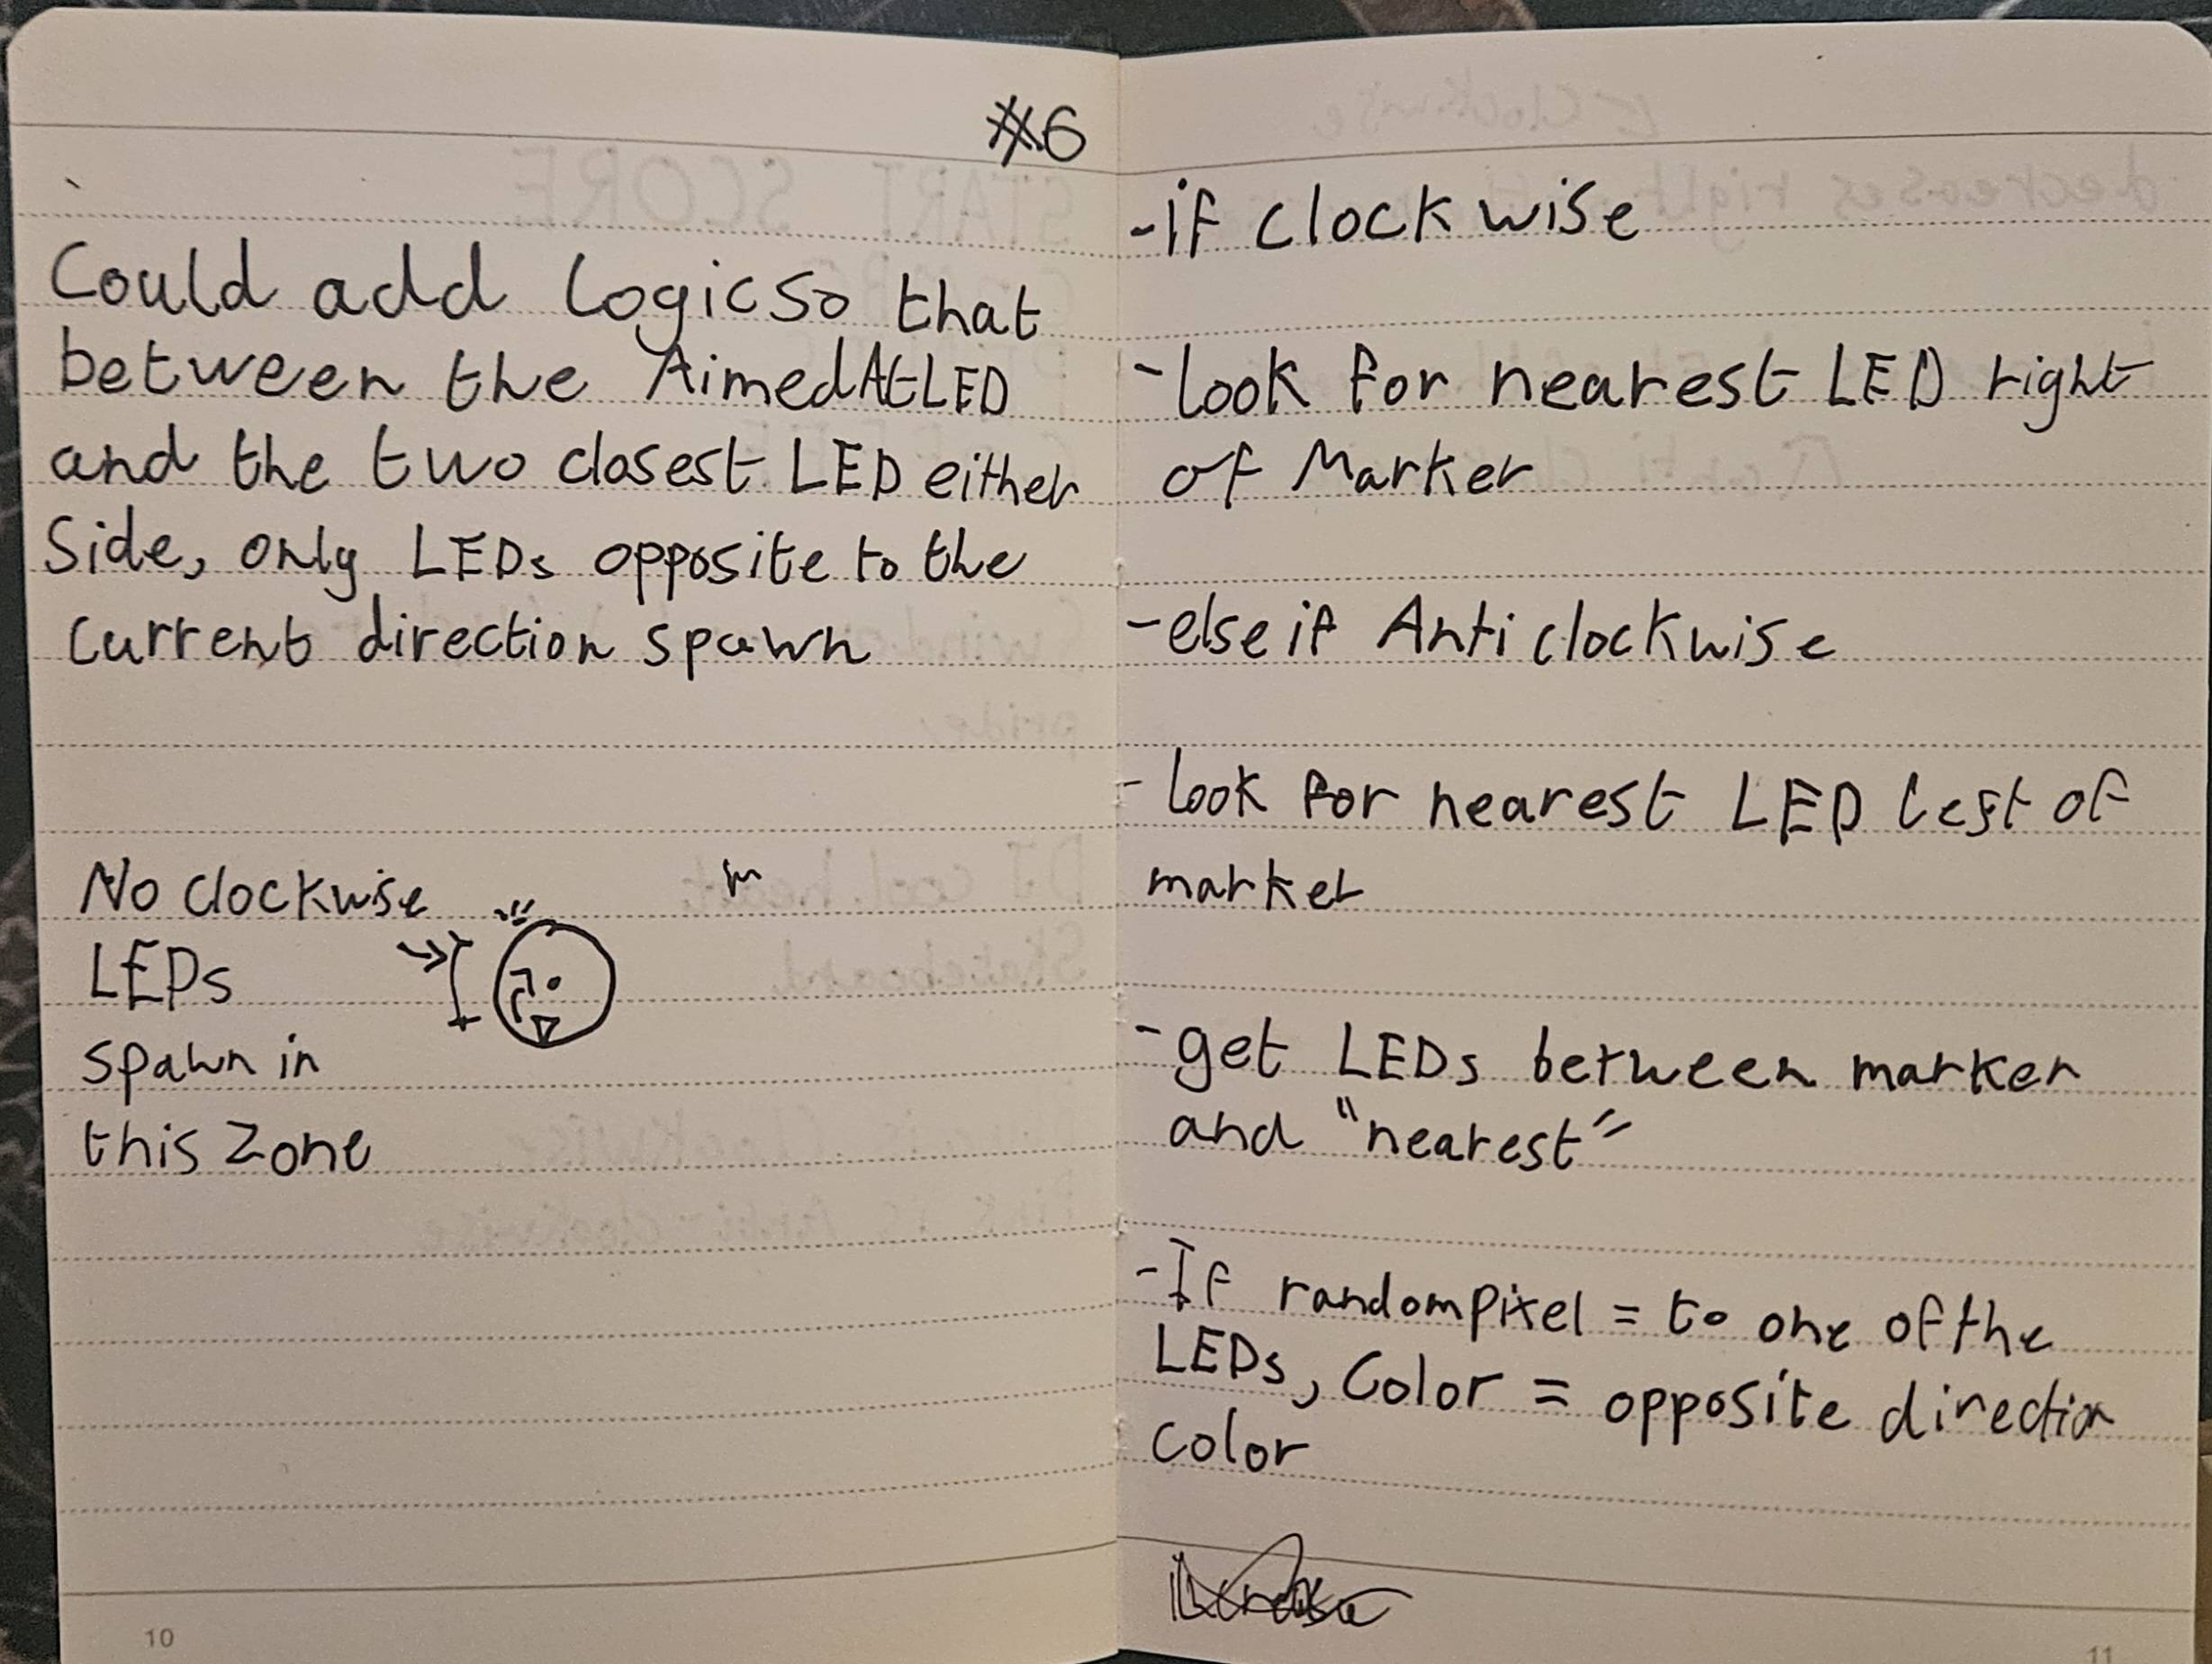 #6
Could add logic so that
between the AimedAtLED
and the two closest LED either
Side, only LEDs opposite to the
current direction spawn
No clockwise
LEDs
spawn in
this Zone
10
-if clockwise
-look for nearest LED right
of Marker
-else if Anticlockwise
-look for nearest LED left of
marker
-get LEDs between marker
and "nearest"
-If randompixel = to one of the
LEDs, Color = opposite direction
color
11